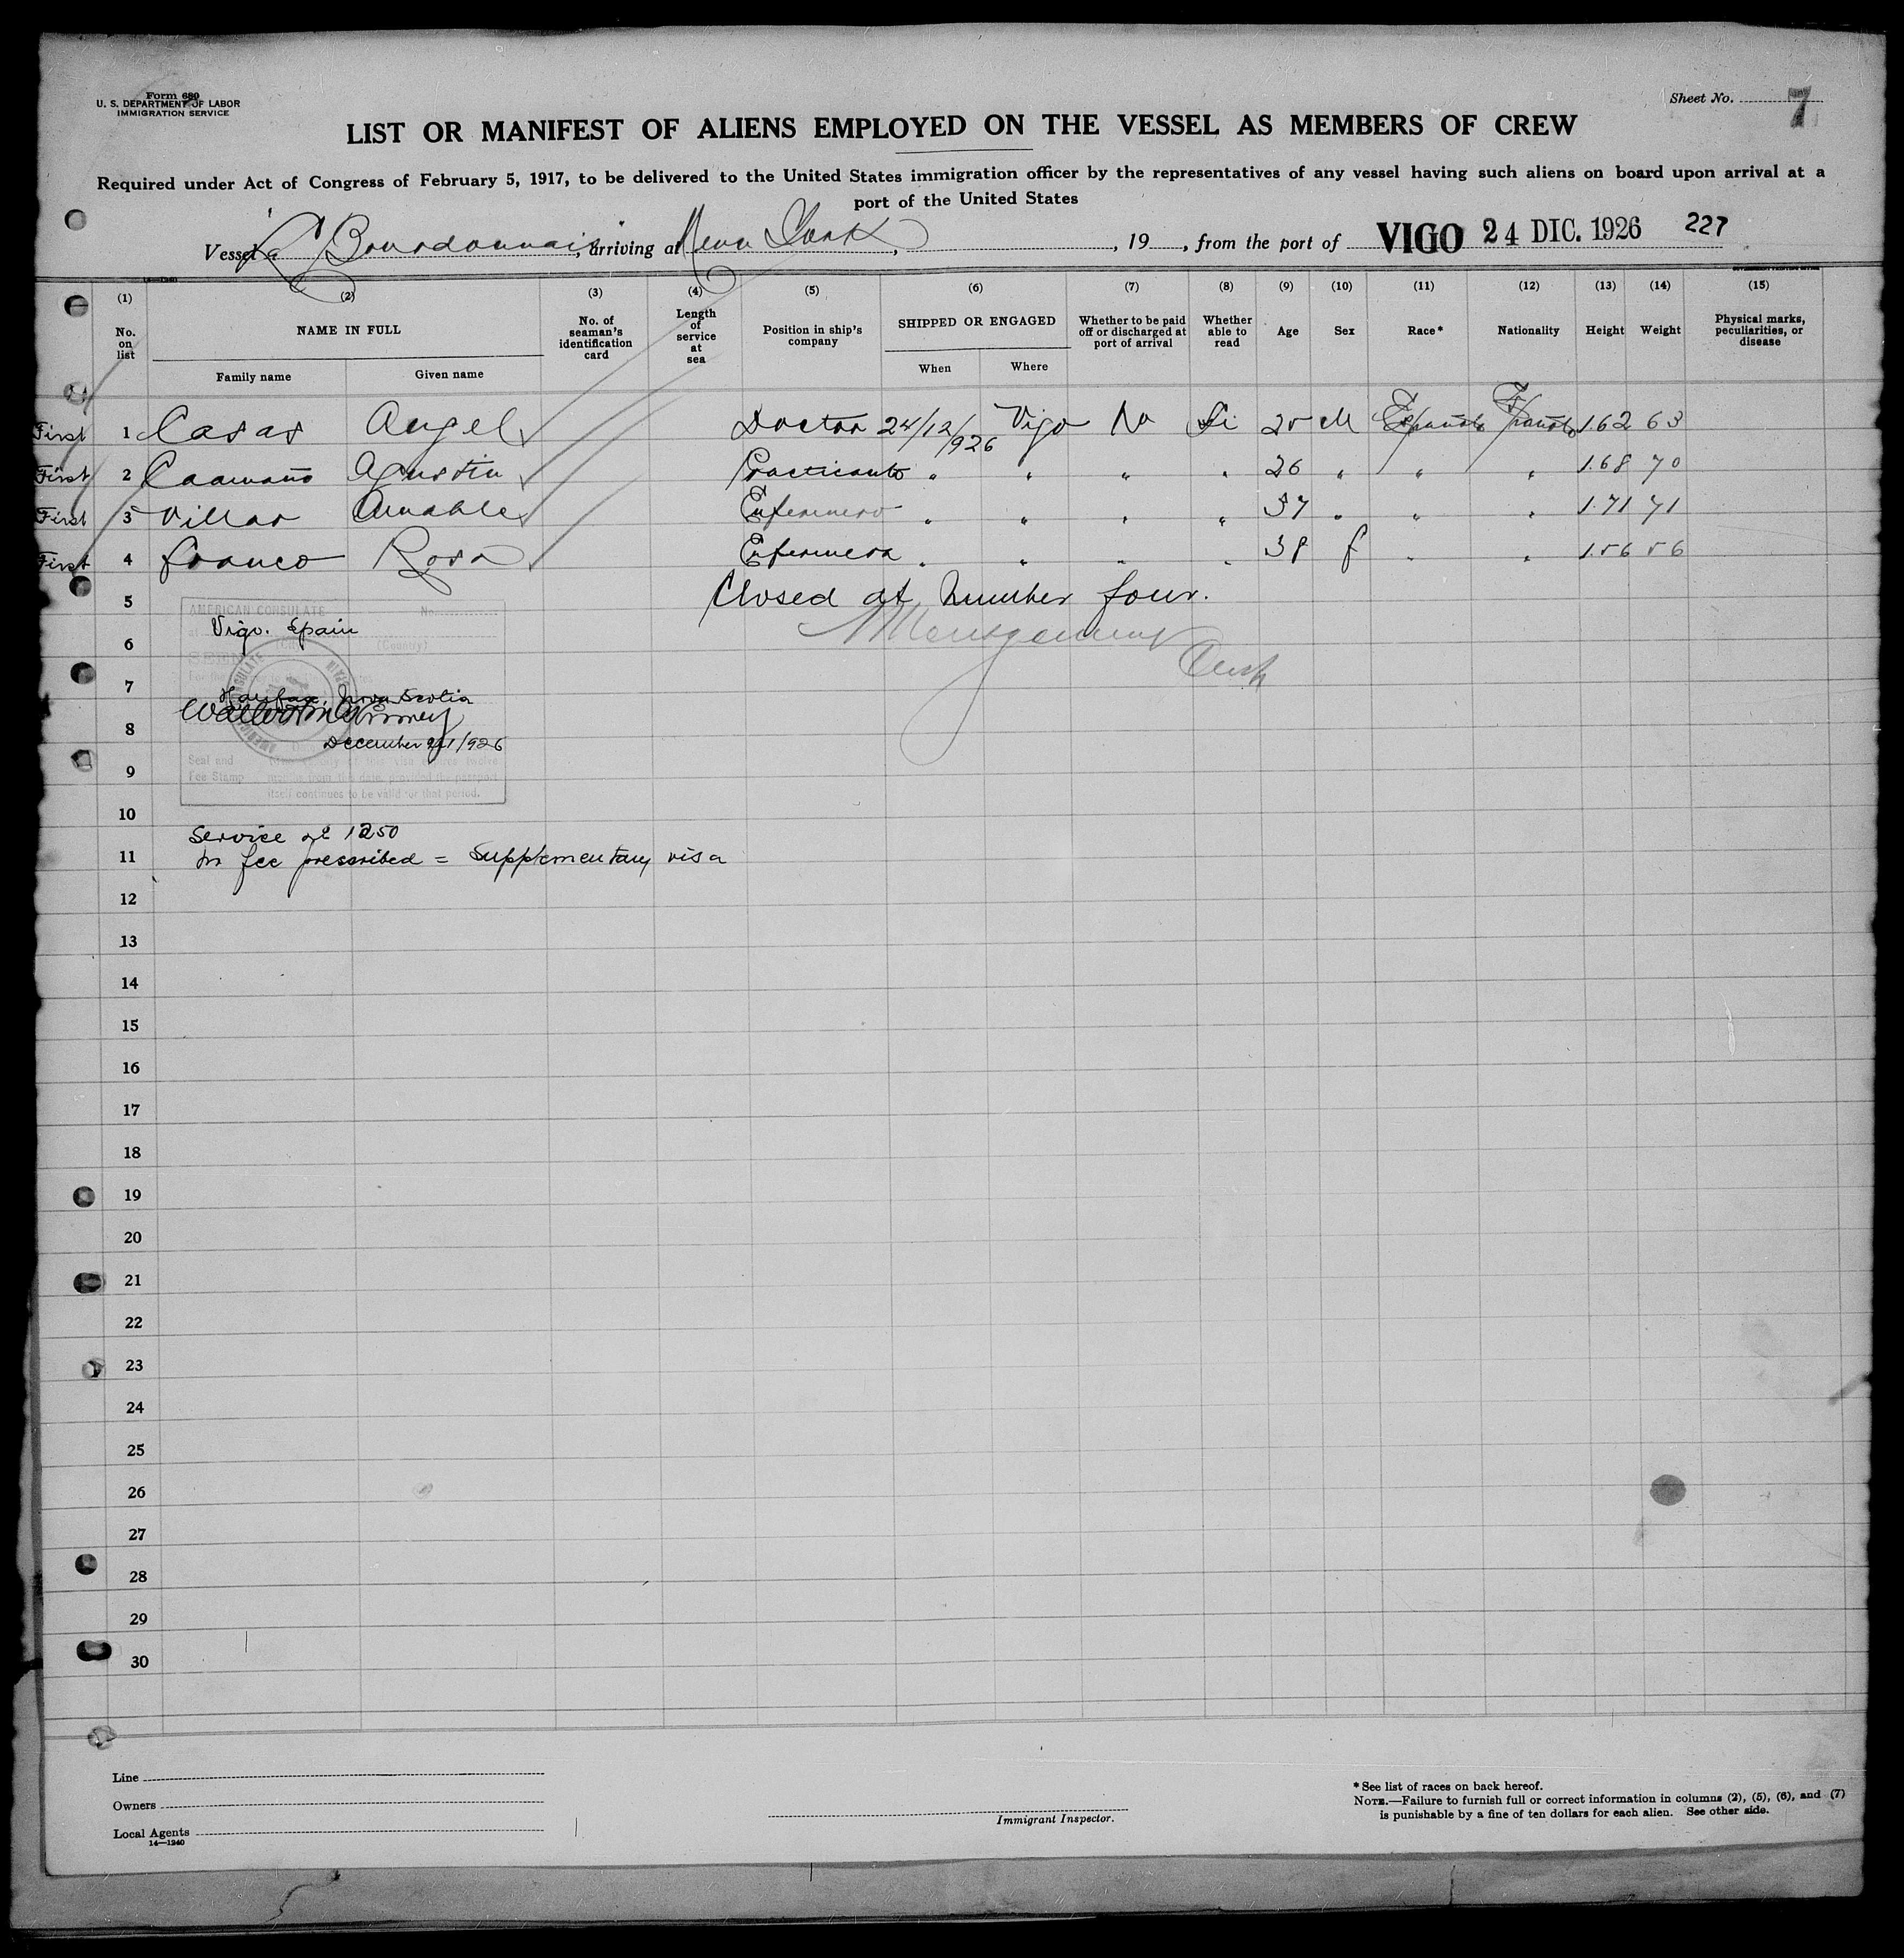 Form 680
U. S. DEPARTMENT OF LABOR
IMMIGRATION SERVICE
Sheet No. 7
LIST OR MANIFEST OF ALIENS EMPLOYED ON THE VESSEL AS MEMBERS OF CREW
Required under Act of Congress of February 5, 1917, to be delivered to the United States immigration officer by the representatives of any vessel having such aliens on board upon arrival at a
port of the United States
Vessel La Bourdonnais, arriving at New York, , 19 , from the port of VIGO 24 DIC. 1926 227
(1) (2) (3) (4) (5) (6) (7) (8) (9) (10) (11) (12) (13) (14) (15)
No. on list NAME IN FULL No. of seaman's identification card Length of service at sea Position in ship's company SHIPPED OR ENGAGED Whether to be paid off or discharged at port of arrival Whether able to read Age Sex Race* Nationality Height Weight Physical marks, peculiarities, or disease
Family name Given name When Where
First 1 Casas Angel Doctor 24/12/926 Vigo No Si 25 M Española Española 1.62 63
First 2 Caamaño Agustin Practicante " " " " 26 " " " 1.68 70
First 3 Villar Amable Enfermero " " " " 37 " " " 1.71 71
First 4 Franco Rosa Enfermera " " " " 38 f " " 1.56 56
5 Closed at number four.
AMERICAN CONSULATE No.
Vigo. Spain
6 Montgomery
(Country)
7
Halifax, Nova Scotia
8
December 1926
9
Seal and
Fee Stamp
months from this date, provided the passport
itself continues to be valid for that period.
10
Service No 1250
11 no fee prescribed = Supplementary visa
12
13
14
15
16
17
18
19
20
21
22
23
24
25
26
27
28
29
30
Line
Owners
Local Agents
14—1240
Immigrant Inspector.
* See list of races on back hereof.
NOTE.—Failure to furnish full or correct information in columns (2), (5), (6), and (7)
is punishable by a fine of ten dollars for each alien. See other side.